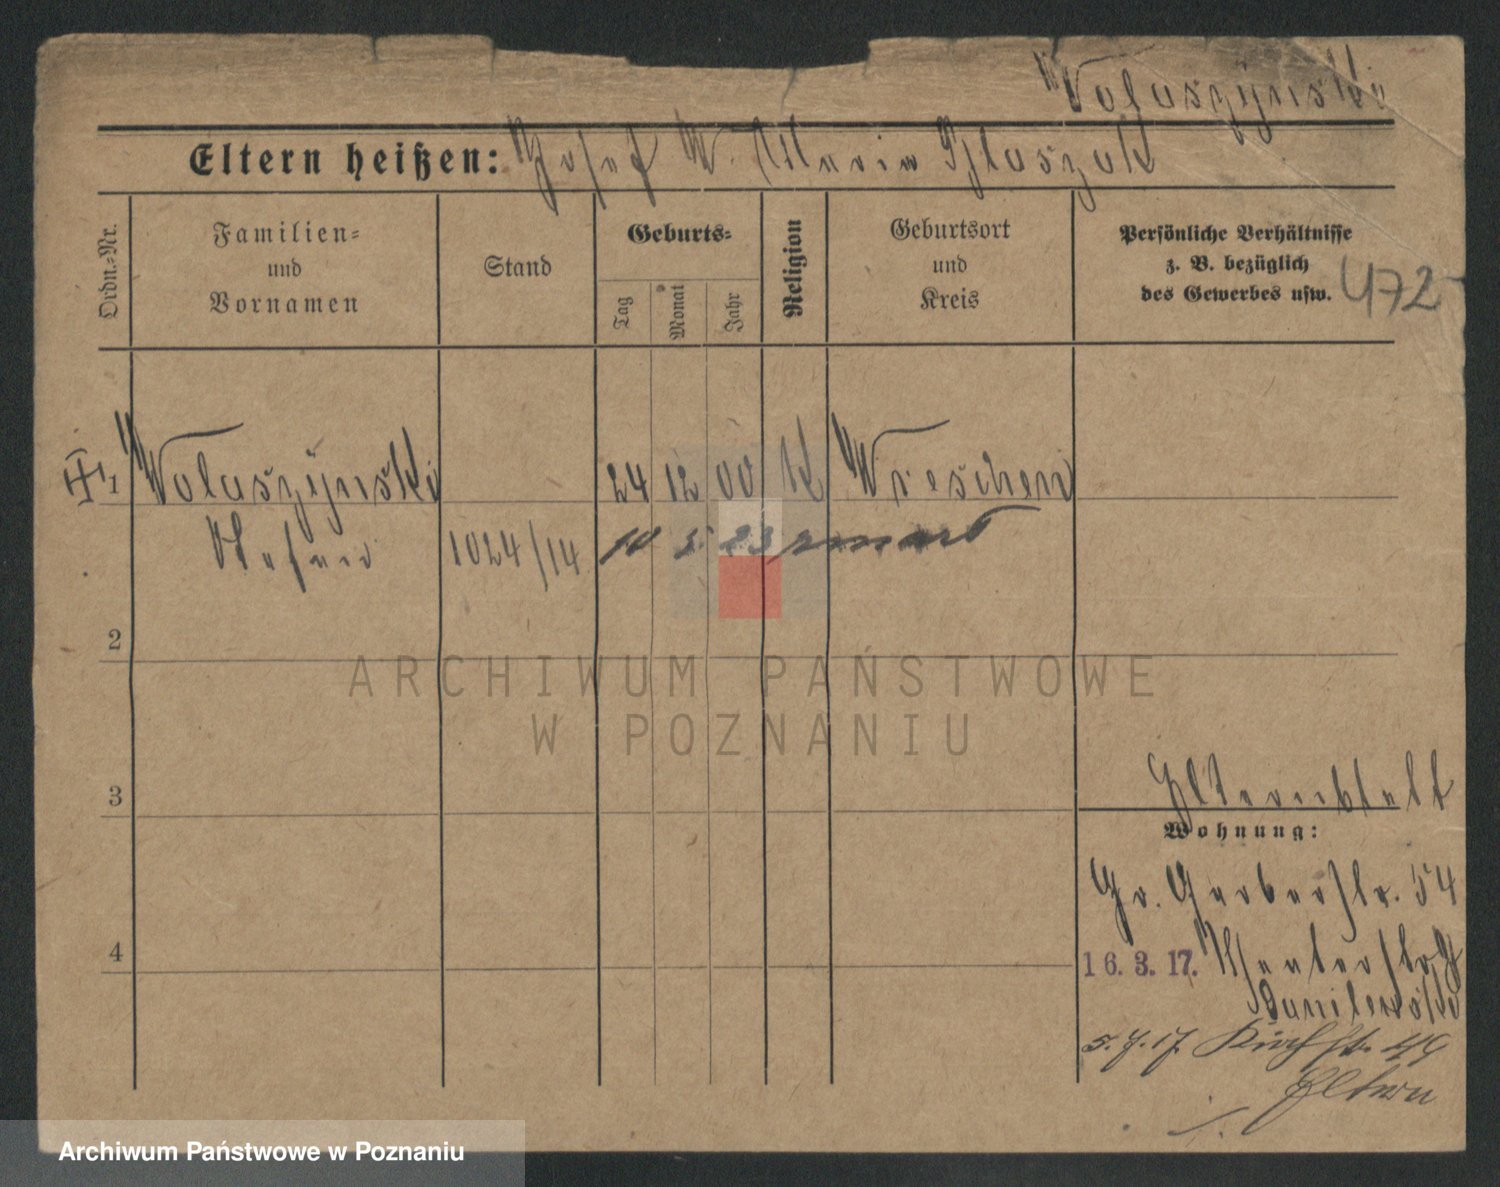 Wolaszynski
Eltern heißen: Josef W. Maria Blaszak
Ordn.-Nr.
Familien-
und
Vornamen
Stand
Geburts-
Tag
Monat
Jahr
Religion
Geburtsort
und
Kreis
Persönliche Verhältnisse
z. B. bezüglich
des Gewerbes usw.
472
1 Wolaszynski 24 12 00 K Wreschen
Stefan 1024/14 10 5 23 zmarł
2
3
4
Wohnung:
Gr. Gerberstr. 54
16. 3. 17.
Danilewski
5. 7. 17. Kirchstr. 49
Eltern
ARCHIWUM PAŃSTWOWE
W POZNANIU
Archiwum Państwowe w Poznaniu